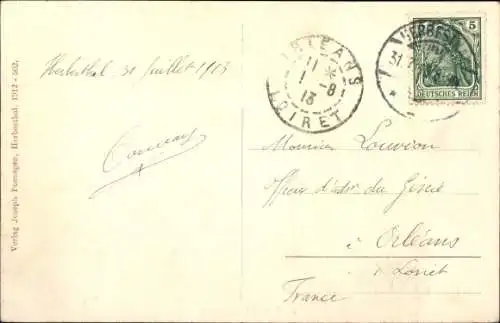 Verlag Joseph Pomagen, Herbesthal. 1912 - 502.
Herbesthal 31 Juillet 1913
ORLEANS
11
1 - 8
13
LOIRET
HERBEST
31.7
5
DEUTSCHES REICH
Monsieur
du Génie
à Orléans
Loiret
France